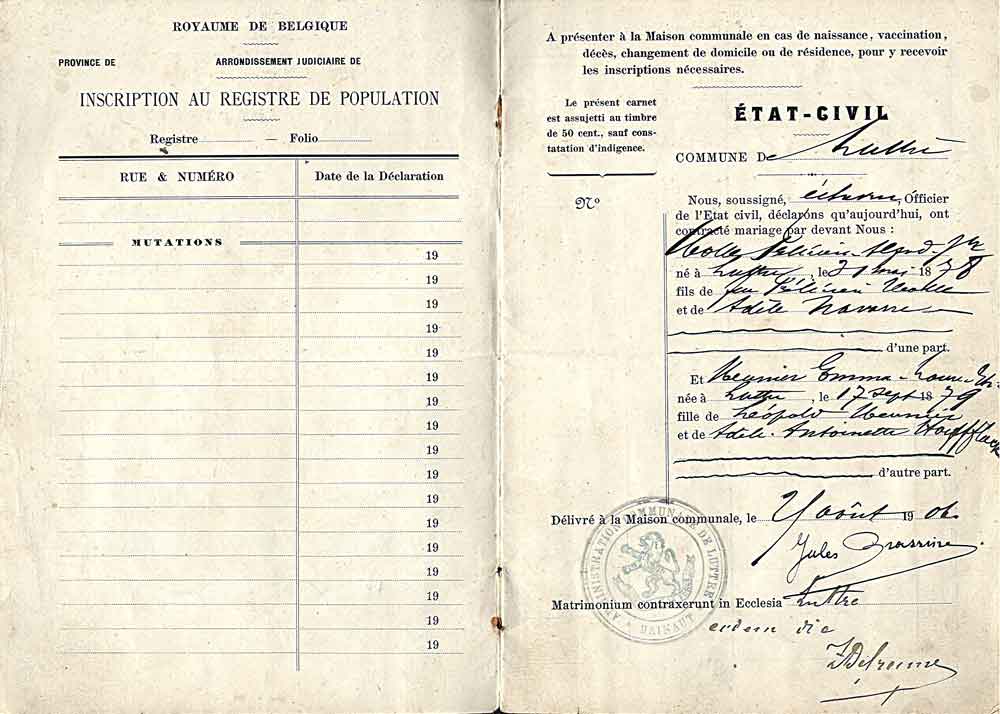 ROYAUME DE BELGIQUE
PROVINCE DE ARRONDISSEMENT JUDICIAIRE DE
INSCRIPTION AU REGISTRE DE POPULATION
Registre — Folio
RUE & NUMÉRO Date de la Déclaration
MUTATIONS
19
19
19
19
19
19
19
19
19
19
19
19
19
19
19
19
19
A présenter à la Maison communale en cas de naissance, vaccination,
décès, changement de domicile ou de résidence, pour y recevoir
les inscriptions nécessaires.
Le présent carnet
est assujetti au timbre
de 50 cent., sauf cons-
tatation d'indigence.
Nº
ÉTAT-CIVIL
COMMUNE De Luttre
Nous, soussigné, Officier
de l'Etat civil, déclarons qu'aujourd'hui, ont
contracté mariage par devant Nous :
Félicien
né à Luttre, le 31 mai 1878
fils de feu Félicien
et de Adèle Navarre
d'une part.
Et Meunier Emma-
née à Luttre, le 17 sept 1879
fille de Léopold Meunier
et de Adèle-Antoinette
d'autre part.
Délivré à la Maison communale, le août 1906
Jules Brassine
ADMINISTRATION COMMUNALE DE LUTTRE
HAINAUT
Matrimonium contraxerunt in Ecclesia Luttre
eadem die